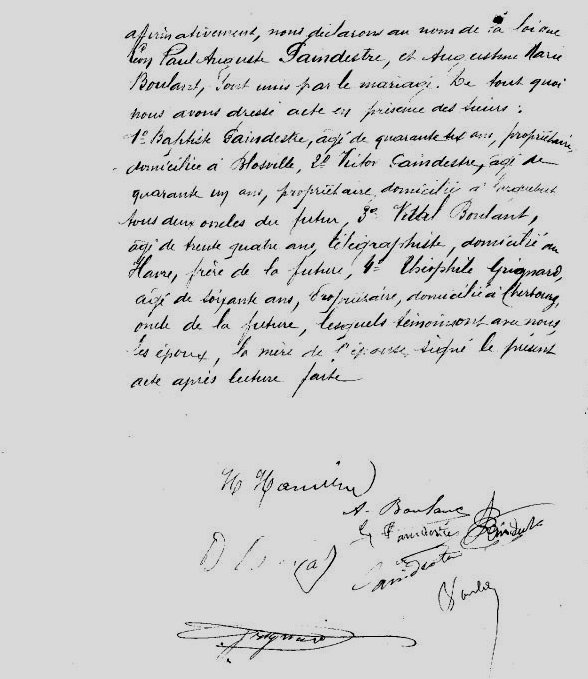 affirmativement, nous déclarons au nom de la loi que
Léon Paul Auguste Paindestre, et Augustine Marie
Boulant, sont unis par le mariage. De tout quoi
nous avons dressé acte en présence des sieurs :
1º Baptiste Paindestre, âgé de quarante ans, propriétaire,
domicilié à Blosville, 2º Victor Paindestre, âgé de
quarante un ans, propriétaire, domicilié à
tous deux oncles du futur, 3º Vital Boulant,
âgé de trente quatre ans, télégraphiste, domicilié au
Havre, frère de la future, 4º Théophile Grignard,
âgé de soixante ans, propriétaire, domicilié à Cherbourg,
oncle de la future, lesquels témoins ont avec nous,
les époux, la mère de l'épouse signé le présent
acte après lecture faite
A. Boulant
L Paindestre
Paindestre